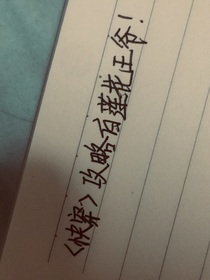 <快穿>攻略白莲花王爷!